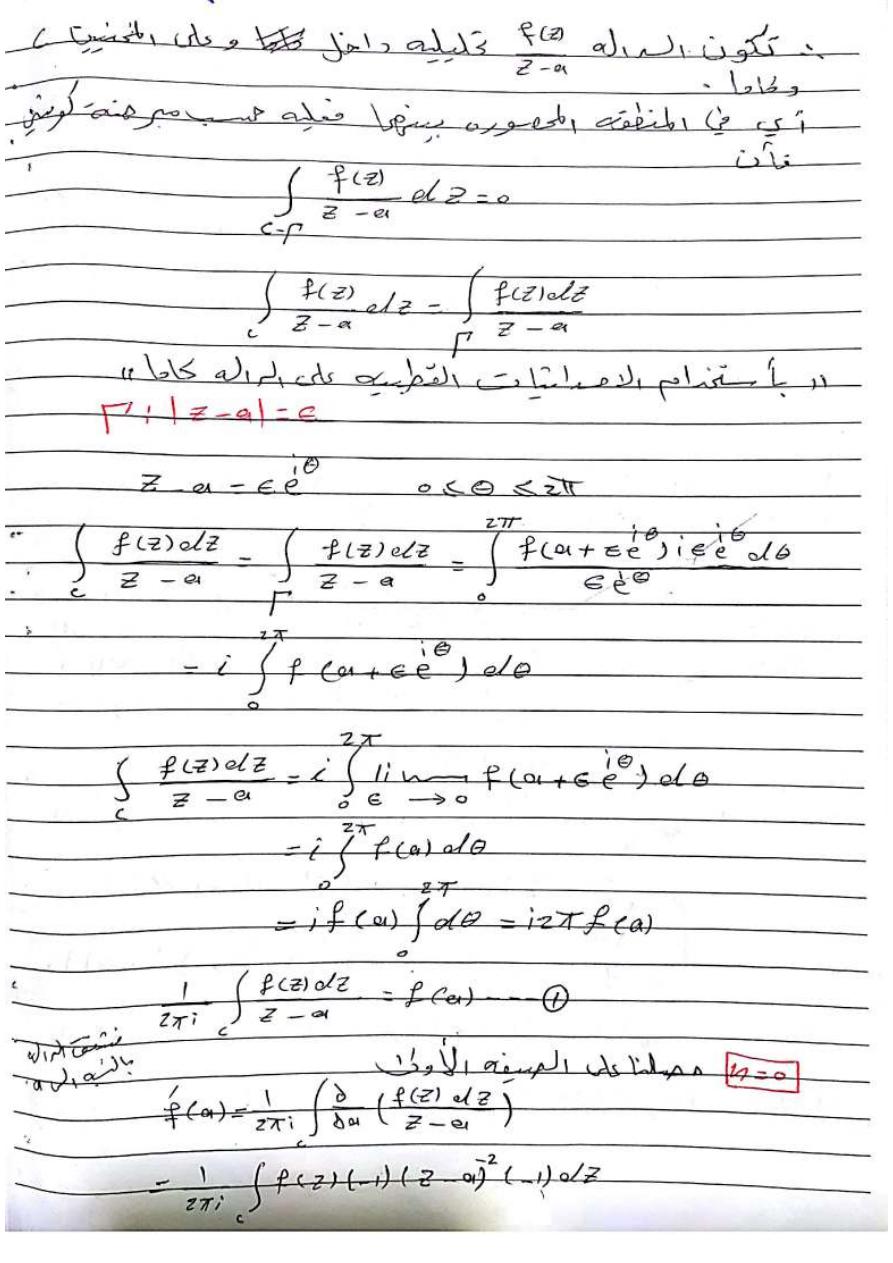 ∴ تكون الداله f(z)/(z-a) تحليليه داخل وعلى المنحنيين c
وكاما .
أي في المنطقه المحصوره بينهما فعليه حسب مبرهنة كوشي
فأن
∫_{c-Γ} f(z)/(z-a) dz = 0
∫_c f(z)/(z-a) dz = ∫_Γ f(z)dz/(z-a)
" بأستخدام الاحداثيات القطبيه على الداله كاما "
Γ: |z-a| = ϵ
z-a = ϵe^{iθ} 0≤θ≤2π
∫_c f(z)dz/(z-a) = ∫_Γ f(z)dz/(z-a) = ∫_0^{2π} f(a+εe^{iθ}) iϵe^{iθ} dθ/(ϵe^{iθ})
= i ∫_0^{2π} f(a+ϵe^{iθ}) dθ
∫_c f(z)dz/(z-a) = i ∫_0^{2π} lim_{ϵ→0} f(a+ϵe^{iθ}) dθ
= i ∫_0^{2π} f(a) dθ
= i f(a) ∫_0^{2π} dθ = i2π f(a)
1/(2πi) ∫_c f(z)dz/(z-a) = f(a) ---- ①
n=0 حصلنا على الصيغه الأولى
نشتق الداله
بالنسبه الى a
f́(a) = 1/(2πi) ∫_c ∂/∂a (f(z) dz/(z-a))
= 1/(2πi) ∫_c f(z)(-1)(z-a)^{-2}(-1)dz